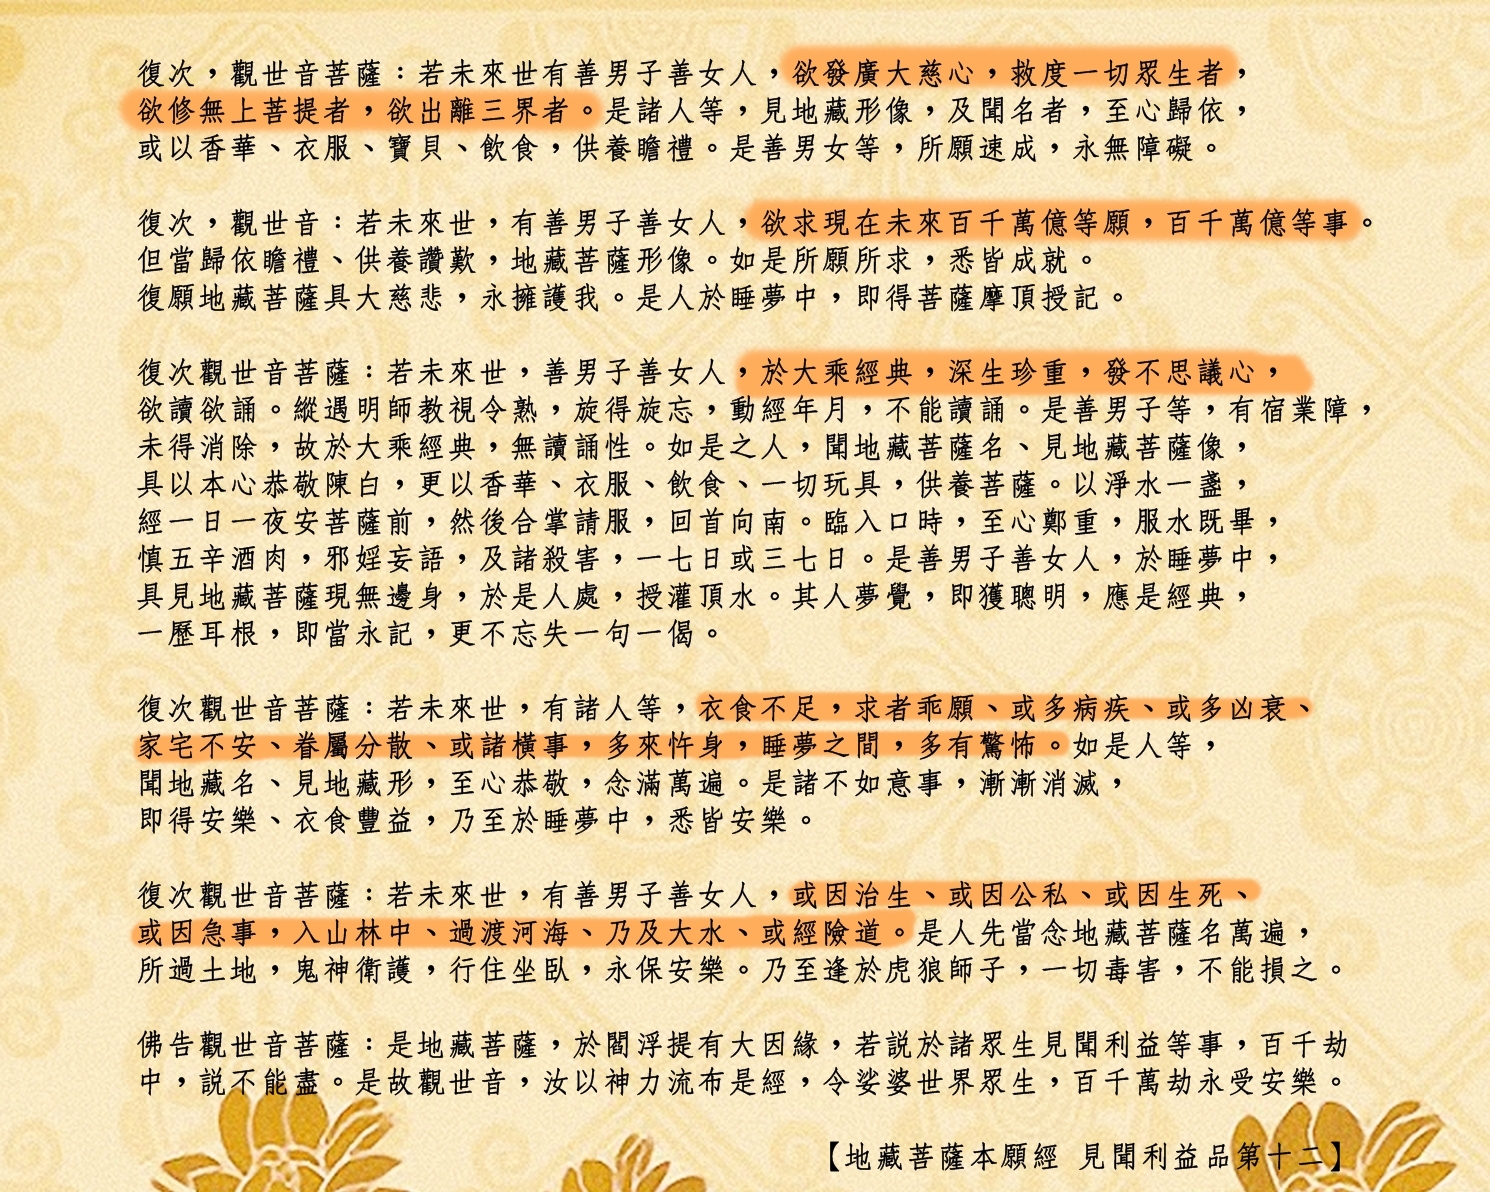 復次，觀世音菩薩：若未來世有善男子善女人，欲發廣大慈心，救度一切眾生者，
欲修無上菩提者，欲出離三界者。是諸人等，見地藏形像，及聞名者，至心歸依，
或以香華、衣服、寶貝、飲食，供養瞻禮。是善男女等，所願速成，永無障礙。
復次，觀世音：若未來世，有善男子善女人，欲求現在未來百千萬億等願，百千萬億等事。
但當歸依瞻禮、供養讚歎，地藏菩薩形像。如是所願所求，悉皆成就。
復願地藏菩薩具大慈悲，永擁護我。是人於睡夢中，即得菩薩摩頂授記。
復次觀世音菩薩：若未來世，善男子善女人，於大乘經典，深生珍重，發不思議心，
欲讀欲誦。縱遇明師教視令熟，旋得旋忘，動經年月，不能讀誦。是善男子等，有宿業障，
未得消除，故於大乘經典，無讀誦性。如是之人，聞地藏菩薩名、見地藏菩薩像，
具以本心恭敬陳白，更以香華、衣服、飲食、一切玩具，供養菩薩。以淨水一盞，
經一日一夜安菩薩前，然後合掌請服，回首向南。臨入口時，至心鄭重，服水既畢，
慎五辛酒肉，邪婬妄語，及諸殺害，一七日或三七日。是善男子善女人，於睡夢中，
具見地藏菩薩現無邊身，於是人處，授灌頂水。其人夢覺，即獲聰明，應是經典，
一歷耳根，即當永記，更不忘失一句一偈。
復次觀世音菩薩：若未來世，有諸人等，衣食不足，求者乖願、或多病疾、或多凶衰、
家宅不安、眷屬分散、或諸橫事，多來忤身，睡夢之間，多有驚怖。如是人等，
聞地藏名、見地藏形，至心恭敬，念滿萬遍。是諸不如意事，漸漸消滅，
即得安樂、衣食豐益，乃至於睡夢中，悉皆安樂。
復次觀世音菩薩：若未來世，有善男子善女人，或因治生、或因公私、或因生死、
或因急事，入山林中、過渡河海、乃及大水、或經險道。是人先當念地藏菩薩名萬遍，
所過土地，鬼神衛護，行住坐臥，永保安樂。乃至逢於虎狼師子，一切毒害，不能損之。
佛告觀世音菩薩：是地藏菩薩，於閻浮提有大因緣，若說於諸眾生見聞利益等事，百千劫
中，說不能盡。是故觀世音，汝以神力流布是經，令娑婆世界眾生，百千萬劫永受安樂。
【地藏菩薩本願經 見聞利益品第十二】